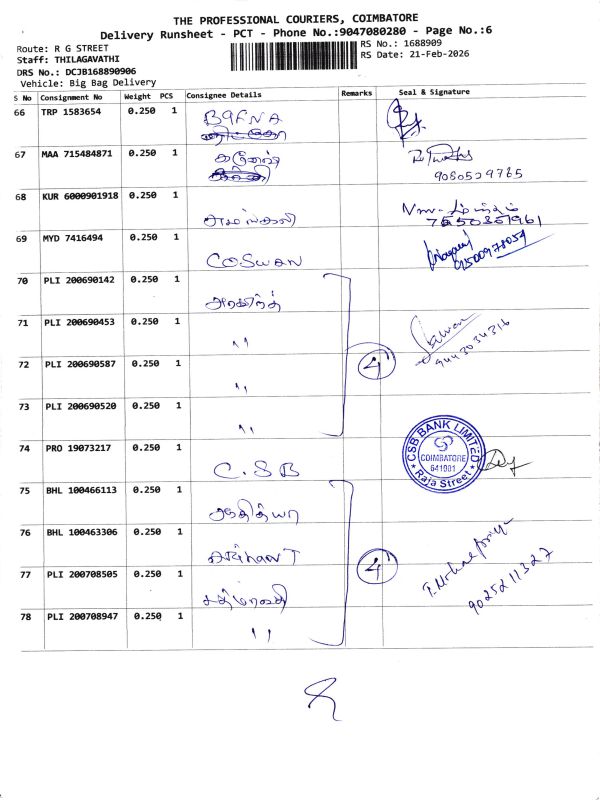 THE PROFESSIONAL COURIERS, COIMBATORE
Delivery Runsheet - PCT - Phone No.:9047080280 - Page No.:6
Route: R G STREET
RS No.: 1688909
Staff: THILAGAVATHI
RS Date: 21-Feb-2026
DRS No.: DCJB168890906
Vehicle: Big Bag Delivery
S No Consignment No Weight PCS Consignee Details Remarks Seal & Signature
66 TRP 1583654 0.250 1 BAFNA
67 MAA 715484871 0.250 1
9080529785
68 KUR 6000901918 0.250 1
7550351961
69 MYD 7416494 0.250 1 COSWAN
9500978054
70 PLI 200690142 0.250 1 அரவிந்த்
71 PLI 200690453 0.250 1 ,,
9443034316
72 PLI 200690587 0.250 1 ,, 4
73 PLI 200690520 0.250 1 ,,
74 PRO 19073217 0.250 1 C.S.B
CSB BANK LIMITED
COIMBATORE
641001
Raja Street
75 BHL 100466113 0.250 1 ஆதித்யா
76 BHL 100463306 0.250 1
77 PLI 200708505 0.250 1 4
9025211327
78 PLI 200708947 0.250 1 ,,